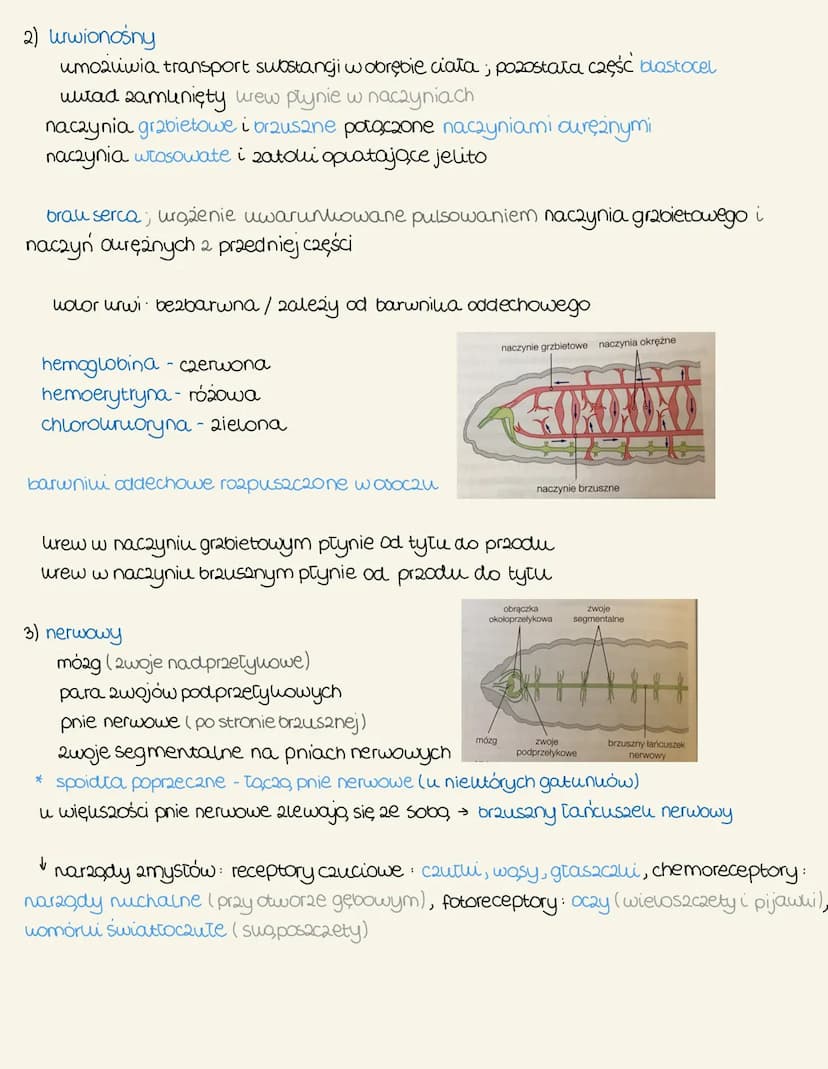 2) krwionośny
umożliwia transport substancji w obrębie ciała ; pozostała część blastocel
układ zamknięty krew płynie w naczyniach
naczynia grzbietowe i brzuszne połączone naczyniami okrężnymi
naczynia włosowate i zatoki oplatające jelito
brak serca ; krążenie uwarunkowane pulsowaniem naczynia grzbietowego i
naczyń okrężnych z przedniej części
kolor krwi : bezbarwna / zależy od barwnika oddechowego
naczynie grzbietowe naczynia okrężne
hemoglobina - czerwona
hemoerytryna - różowa
chlorokruoryna - zielona
barwniki oddechowe rozpuszczone w osoczu
naczynie brzuszne
krew w naczyniu grzbietowym płynie od tyłu do przodu
krew w naczyniu brzusznym płynie od przodu do tyłu
3) nerwowy
mózg (zwoje nadprzełykowe)
para zwojów podprzełykowych
pnie nerwowe (po stronie brzusznej)
zwoje segmentalne na pniach nerwowych
obrączka
okołoprzełykowa
zwoje
segmentalne
mózg
zwoje
podprzełykowe
brzuszny łańcuszek
nerwowy
* spoidła poprzeczne - łączą pnie nerwowe (u niektórych gatunków)
u większości pnie nerwowe zlewają się ze sobą → brzuszny łańcuszek nerwowy
↓ narządy zmysłów : receptory czuciowe : czułki, wąsy, głaszczki, chemoreceptory :
narządy nuchalne (przy otworze gębowym), fotoreceptory : oczy (wieloszczety i pijawki),
komórki światłoczułe (skąposzczety)